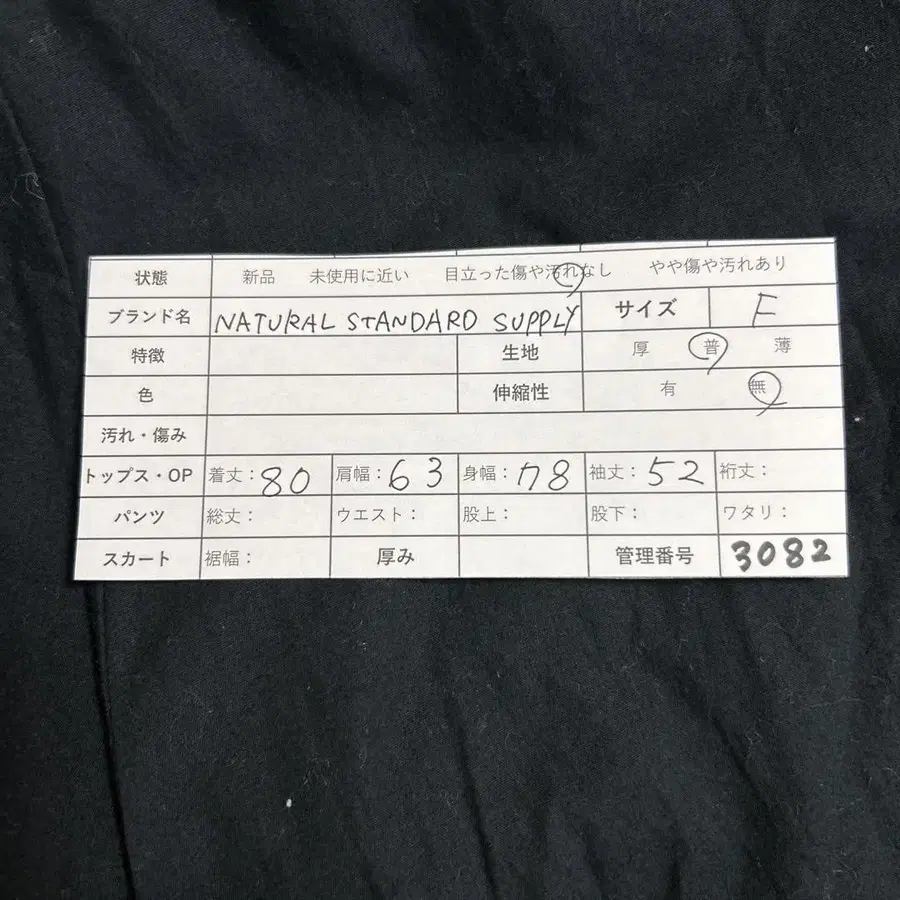 状態 新品 未使用に近い 目立った傷や汚れなし やや傷や汚れあり
ブランド名 NATURAL STANDARD SUPPLY サイズ F
特徴 生地 厚 普 薄
色 伸縮性 有 無
汚れ・傷み
トップス・OP 着丈：80 肩幅：63 身幅：78 袖丈：52 裄丈：
パンツ 総丈： ウエスト： 股上： 股下： ワタリ：
スカート 裾幅： 厚み 管理番号 3082